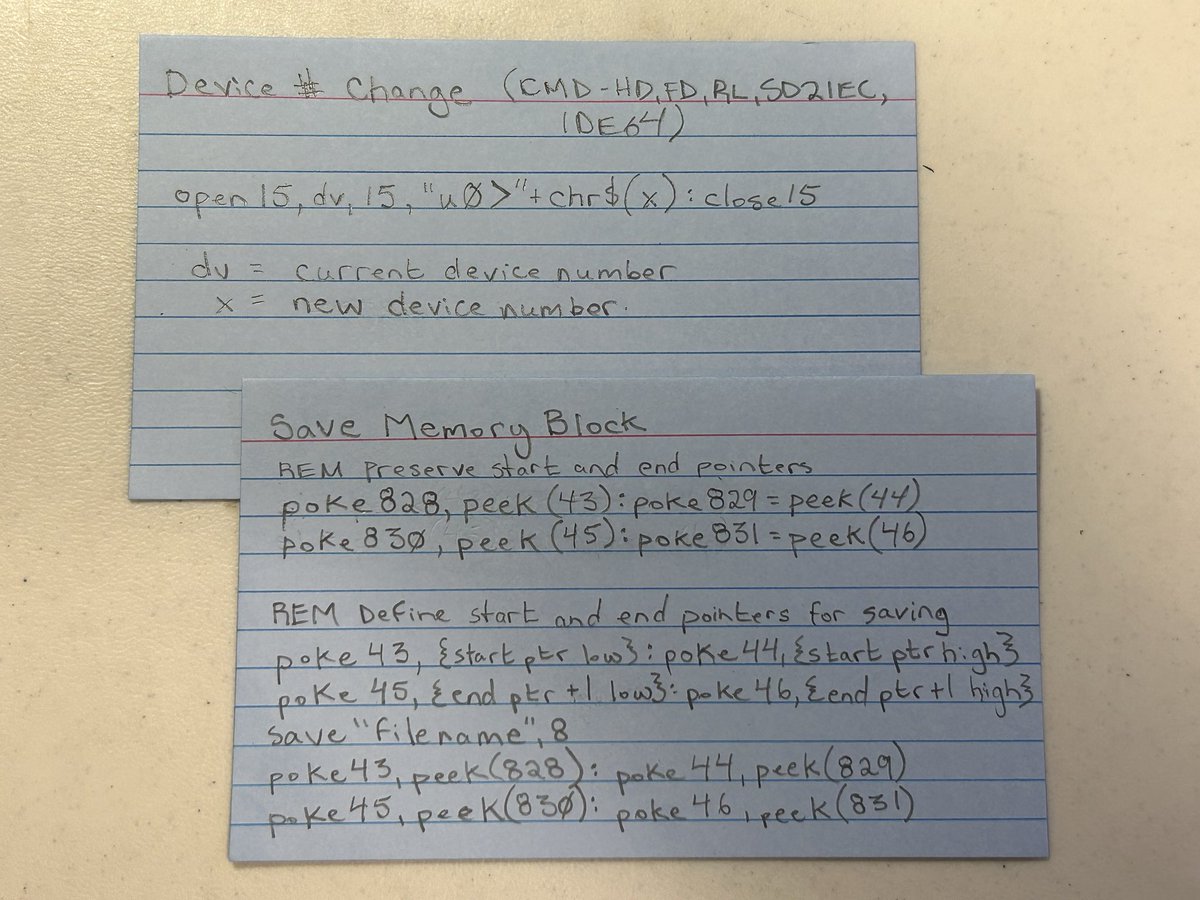 Device # Change (CMD-HD,FD,RL,SD2IEC,
IDE64)
open 15, dv, 15, "uØ>"+chr$(x):close15
dv = current device number
x = new device number.
Save Memory Block
REM Preserve start and end pointers
poke 828, peek (43): poke 829 = peek (44)
poke 83Ø, peek (45): poke 831 = peek (46)
REM Define start and end pointers for saving
poke 43, {start ptr low}: poke 44, {start ptr high}
poke 45, {end ptr +1 low}: poke 46, {end ptr +1 high}
save "filename", 8
poke 43, peek(828): poke 44, peek(829)
poke 45, peek(83Ø): poke 46, peek(831)